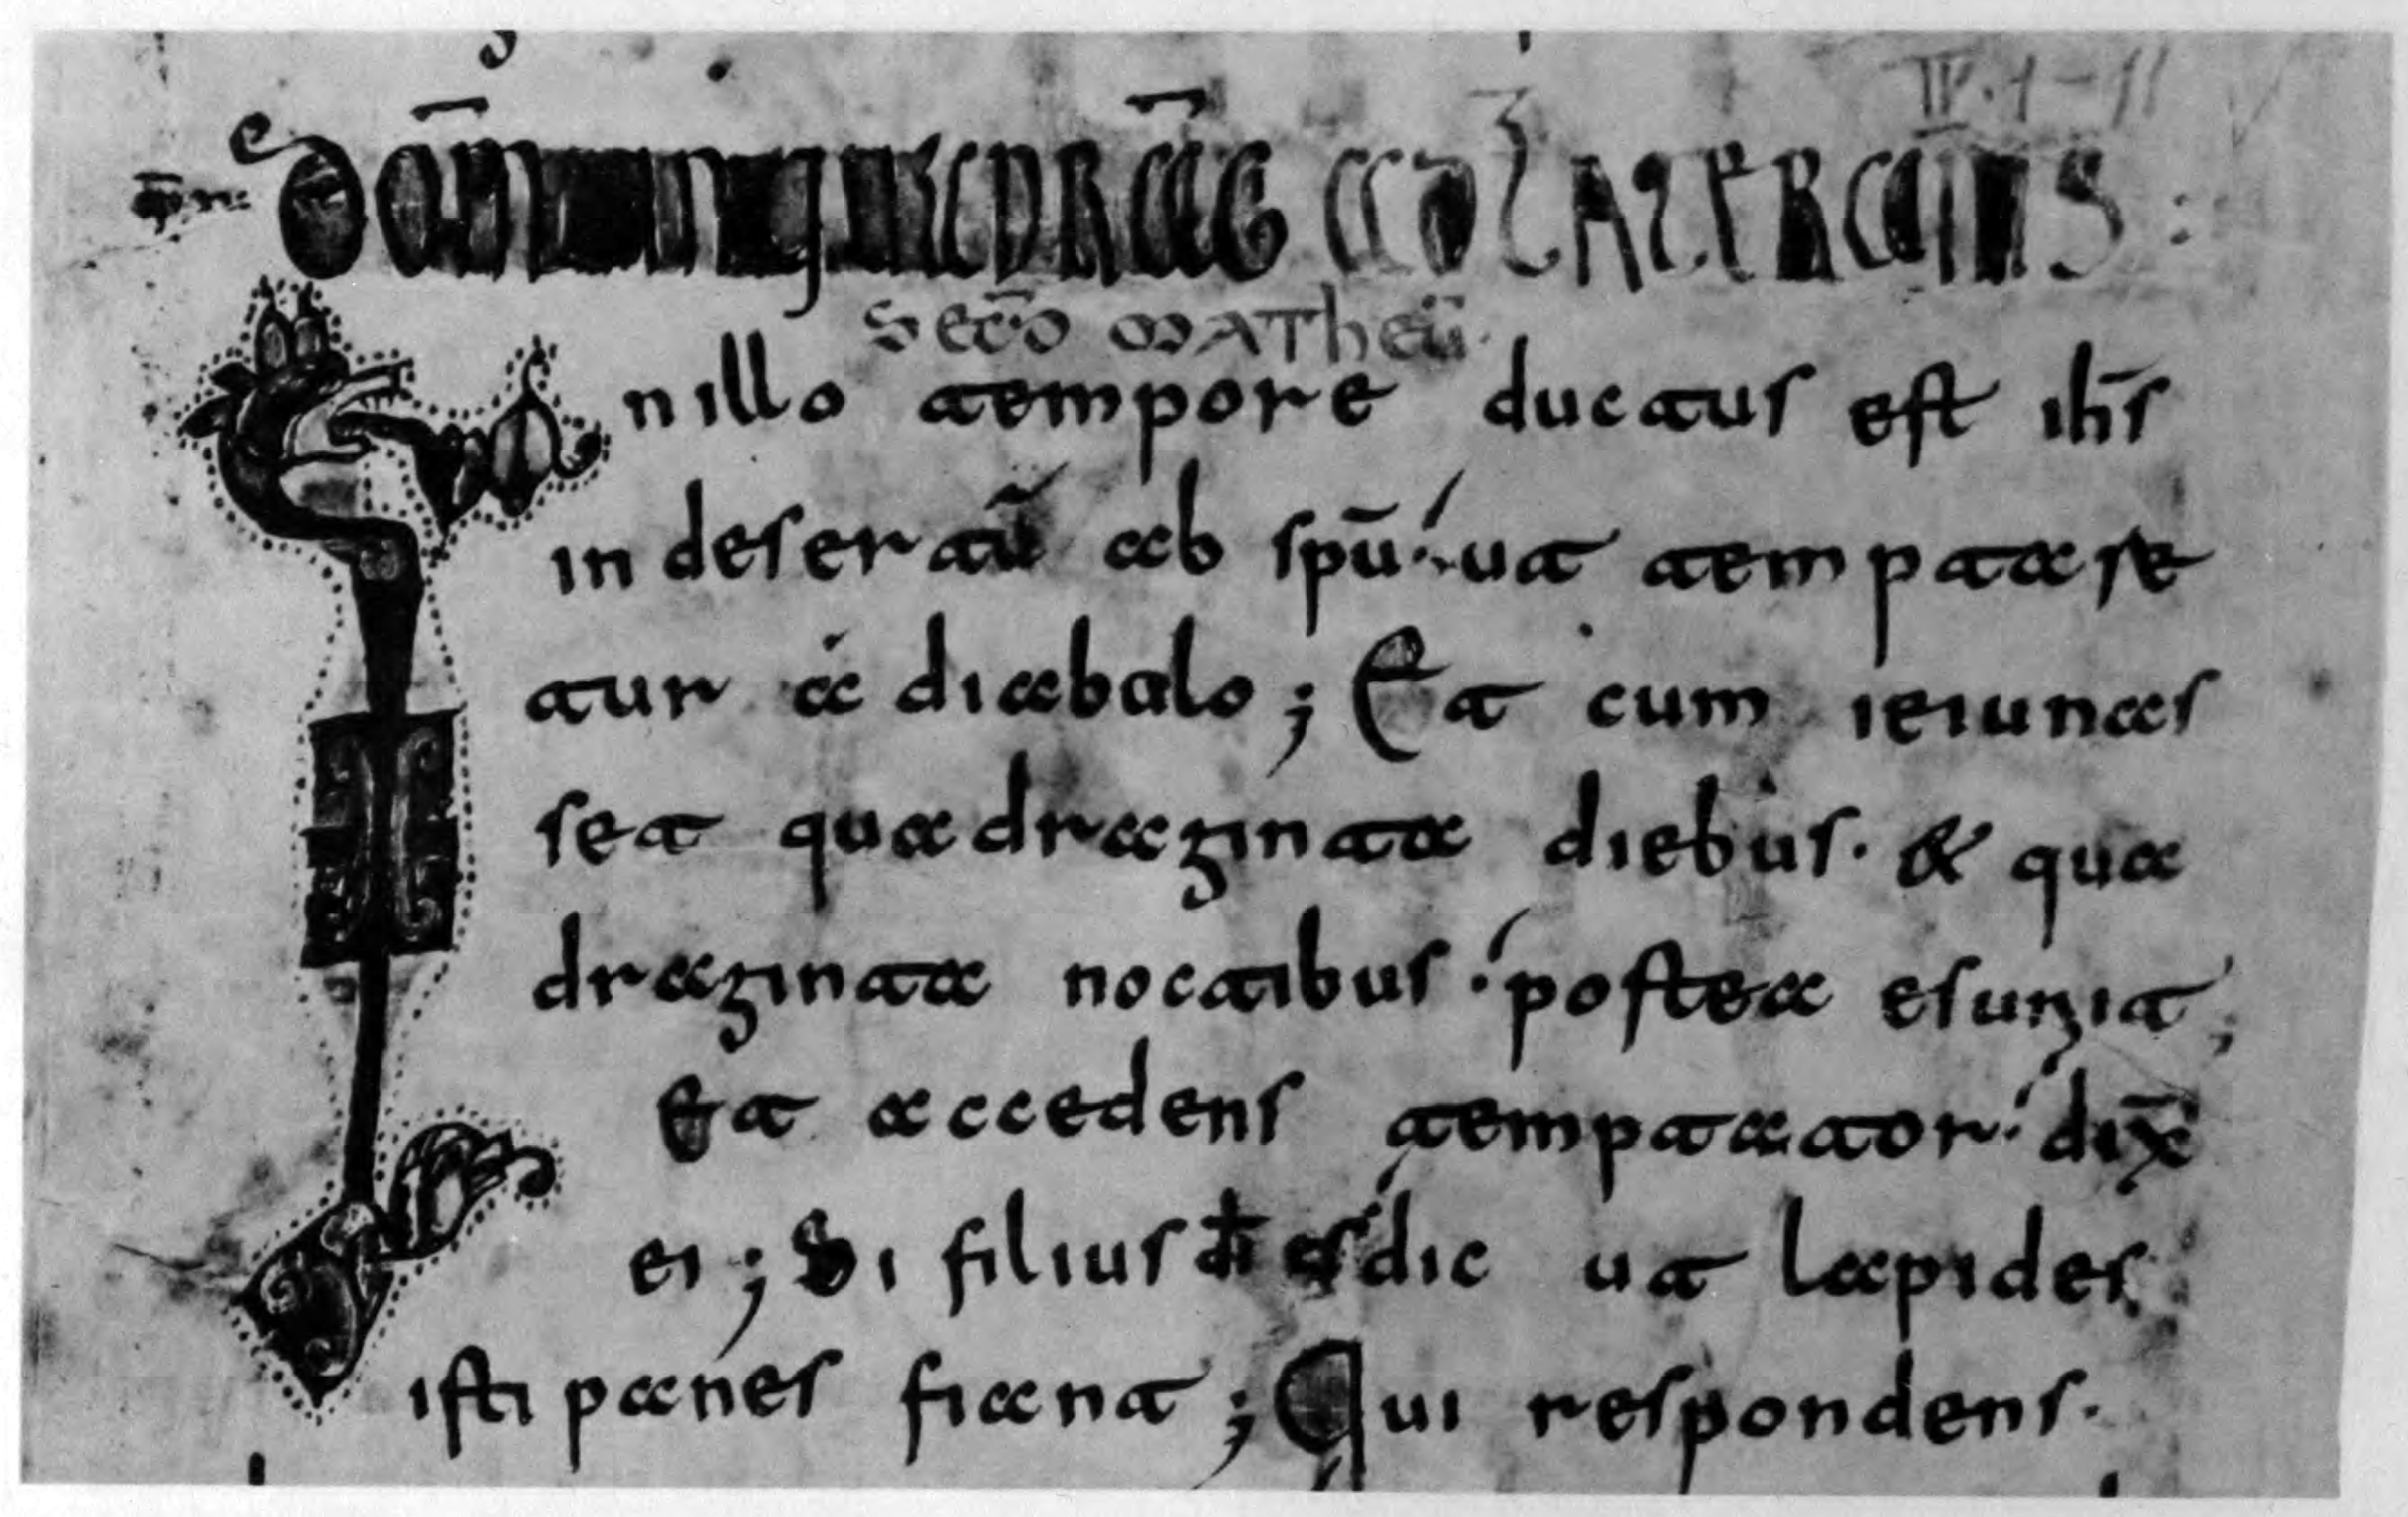 IV. 1-11
DOM̄ IN QUADRAḠ AD LATERANIS :
SECDO MATHEŪ·
Inillo tempore ductus est ih̄s
in desertū ab spū ut temptare
tur a diabolo ; Et cum ieiunas
set quadraginta diebus · & qua
draginta noctibus postea esuriit ;
Et accedens temptator dix̄
ei ; Si filius dī es dic ut lapides
isti panes fiant ; Qui respondens ·